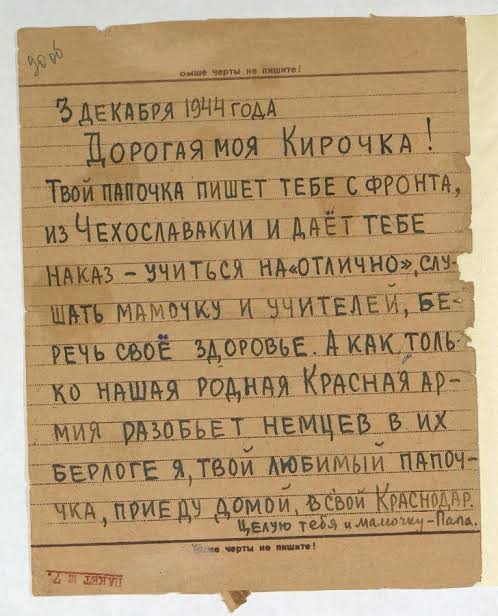 Выше черты не пишите!
3 ДЕКАБРЯ 1944 ГОДА
ДОРОГАЯ МОЯ КИРОЧКА!
ТВОЙ ПАПОЧКА ПИШЕТ ТЕБЕ С ФРОНТА,
ИЗ ЧЕХОСЛАВАКИИ И ДАЁТ ТЕБЕ
НАКАЗ – УЧИТЬСЯ НА «ОТЛИЧНО», СЛУ-
ШАТЬ МАМОЧКУ И УЧИТЕЛЕЙ, БЕ-
РЕЧЬ СВОЁ ЗДОРОВЬЕ. А КАК ТОЛЬ-
КО НАШАЯ РОДНАЯ КРАСНАЯ АР-
МИЯ РАЗОБЬЕТ НЕМЦЕВ В ИХ
БЕРЛОГЕ Я, ТВОЙ ЛЮБИМЫЙ ПАПОЧ-
ЧКА, ПРИЕДУ ДОМОЙ, В СВОЙ КРАСНОДАР.
Целую тебя и мамочку – Папа.
Ниже черты не пишите!
ПАКЕТ